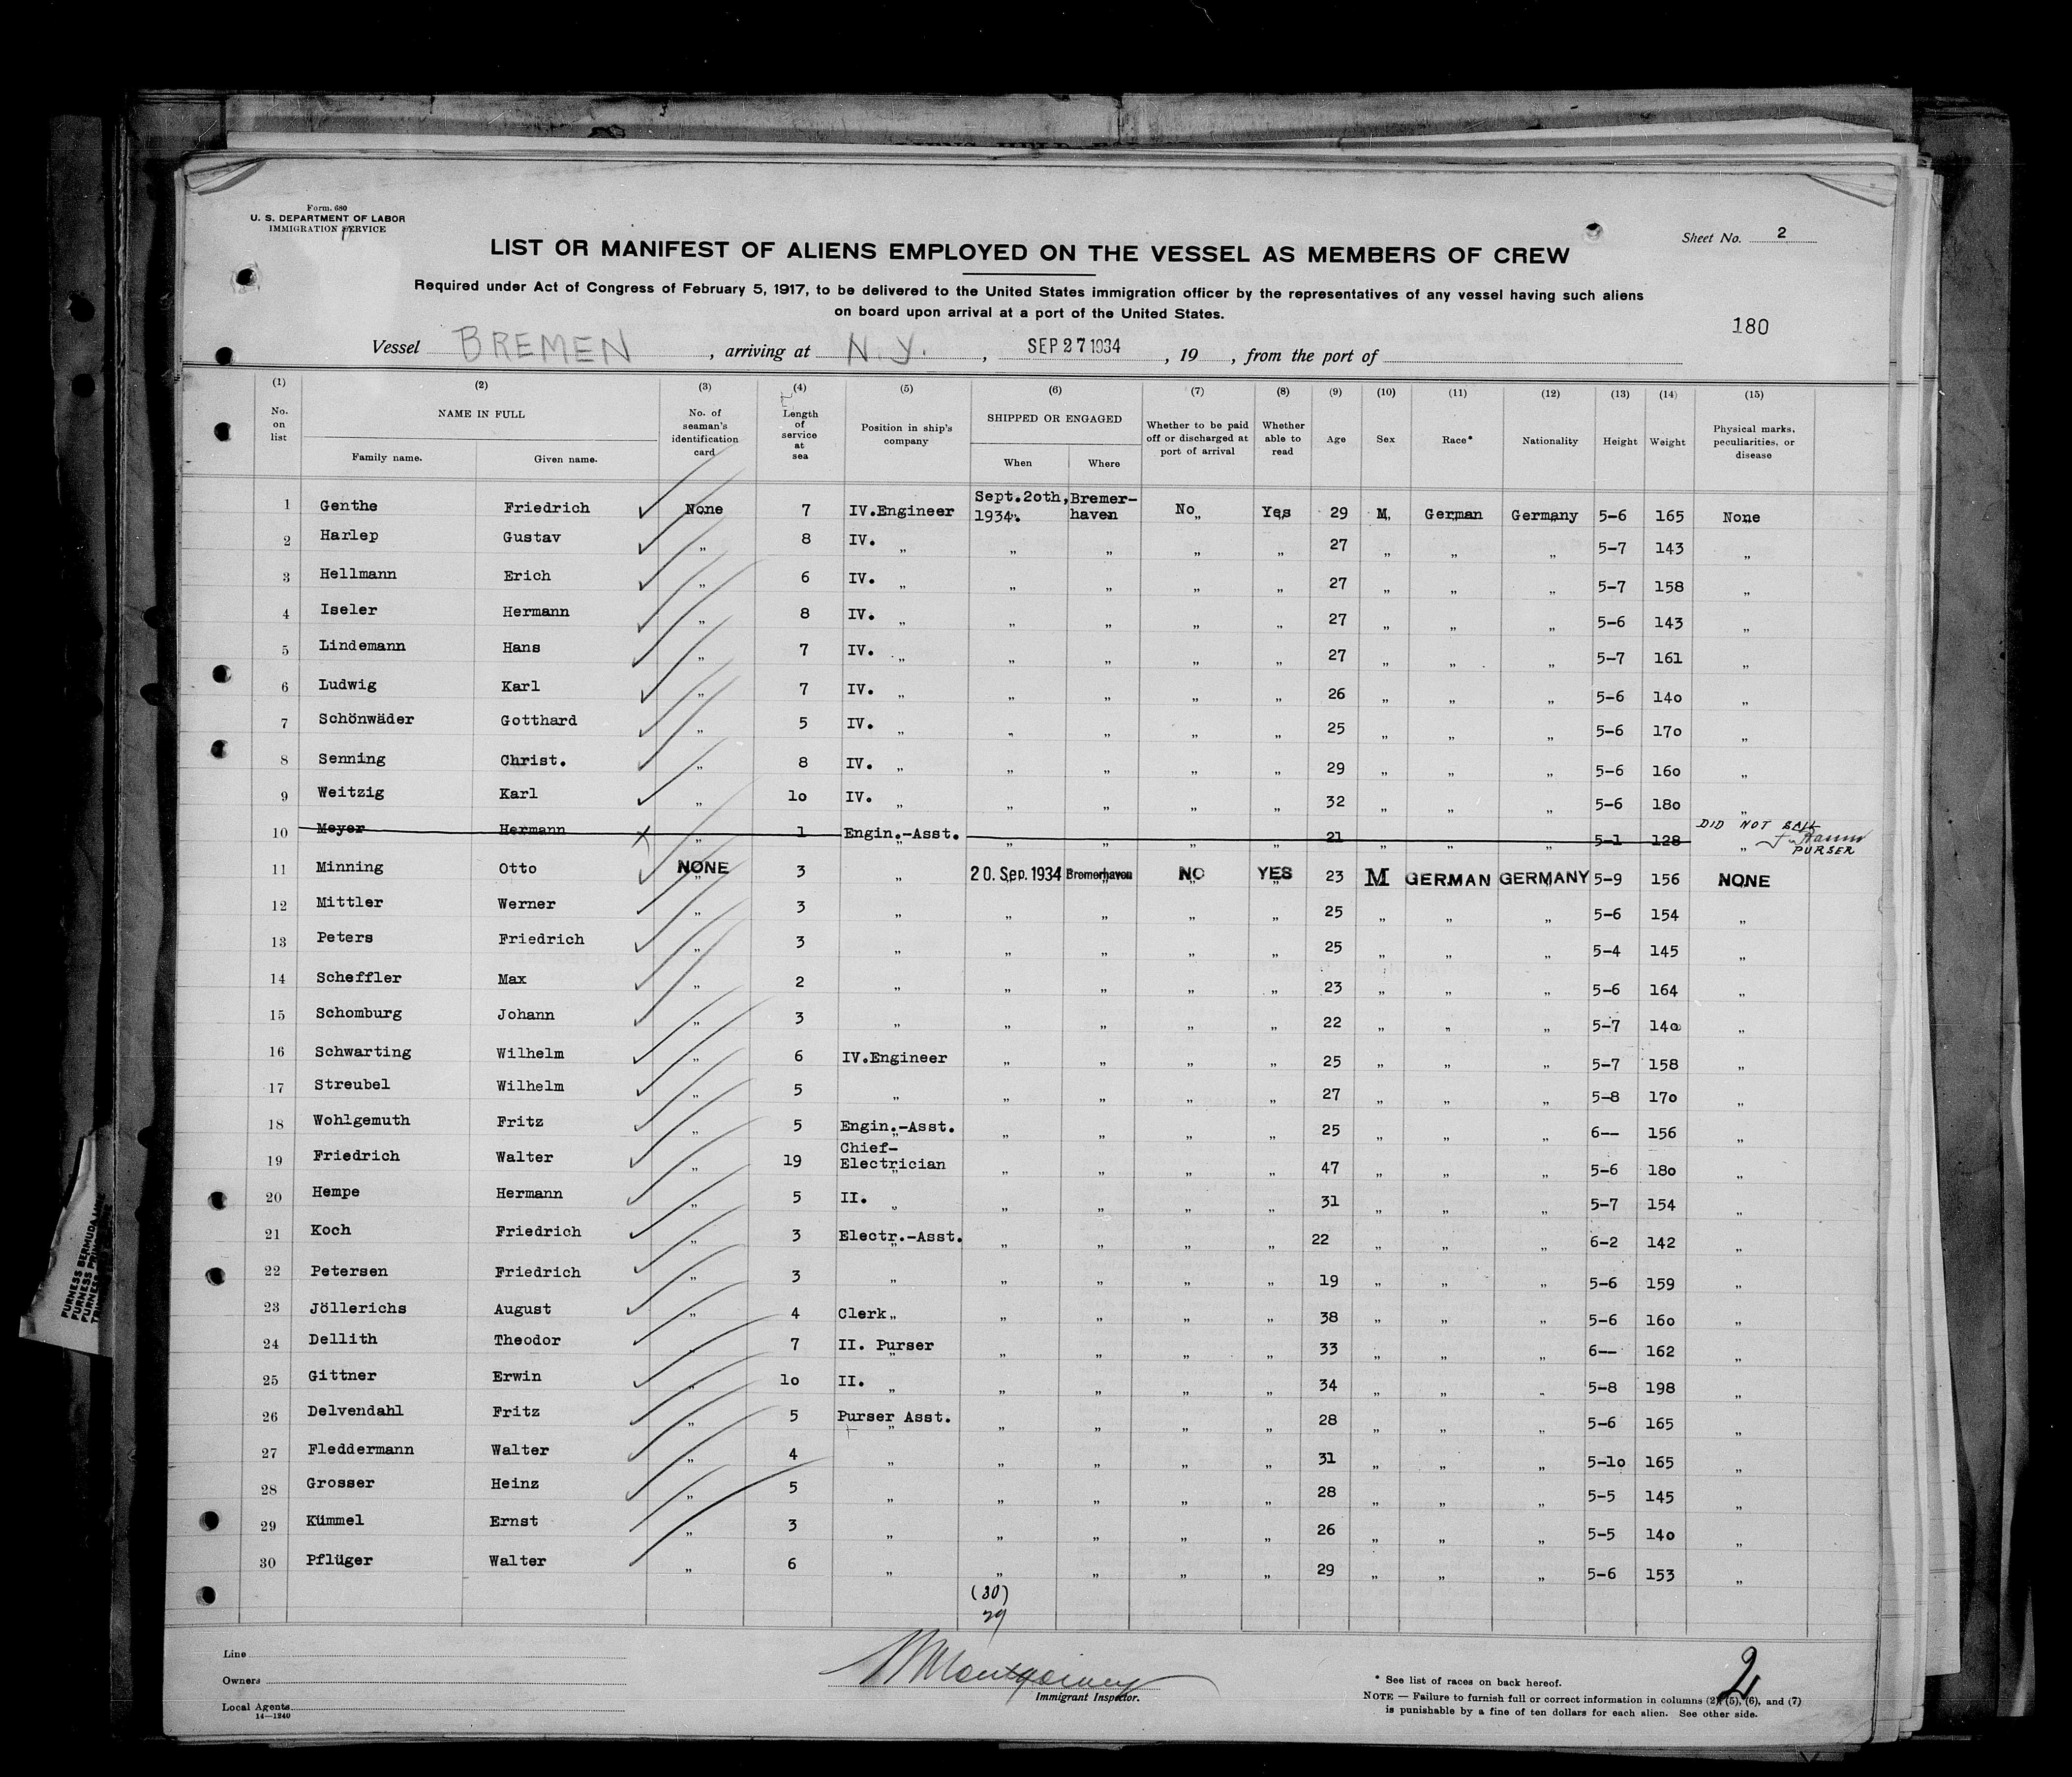 Form. 680
U. S. DEPARTMENT OF LABOR
IMMIGRATION SERVICE
Sheet No. 2
LIST OR MANIFEST OF ALIENS EMPLOYED ON THE VESSEL AS MEMBERS OF CREW
Required under Act of Congress of February 5, 1917, to be delivered to the United States immigration officer by the representatives of any vessel having such aliens
on board upon arrival at a port of the United States.
180
Vessel BREMEN, arriving at N.Y., SEP 27 1934, 19 , from the port of
(1) (2) (3) (4) (5) (6) (7) (8) (9) (10) (11) (12) (13) (14) (15)
No. on list NAME IN FULL Family name. Given name. No. of seaman's identification card Length of service at sea Position in ship's company SHIPPED OR ENGAGED When Where Whether to be paid off or discharged at port of arrival Whether able to read Age Sex Race* Nationality Height Weight Physical marks, peculiarities, or disease
1 Genthe Friedrich None 7 IV.Engineer Sept.2oth, 1934. Bremer-haven No Yes 29 M German Germany 5-6 165 None
2 Harlep Gustav „ 8 IV. „ „ „ „ „ 27 „ „ „ 5-7 143 „
3 Hellmann Erich „ 6 IV. „ „ „ „ „ 27 „ „ „ 5-7 158 „
4 Iseler Hermann „ 8 IV. „ „ „ „ „ 27 „ „ „ 5-6 143 „
5 Lindemann Hans „ 7 IV. „ „ „ „ „ 27 „ „ „ 5-7 161 „
6 Ludwig Karl „ 7 IV. „ „ „ „ „ 26 „ „ „ 5-6 14o „
7 Schönwäder Gotthard „ 5 IV. „ „ „ „ „ 25 „ „ „ 5-6 17o „
8 Senning Christ. „ 8 IV. „ „ „ „ „ 29 „ „ „ 5-6 16o „
9 Weitzig Karl „ 1o IV. „ „ „ „ „ 32 „ „ „ 5-6 18o „
10 Meyer Hermann „ 1 Engin.-Asst. „ „ „ „ 21 „ „ „ 5-1 128 „ DID NOT SAIL PURSER
11 Minning Otto NONE 3 „ 20. Sep. 1934 Bremerhaven NO YES 23 M GERMAN GERMANY 5-9 156 NONE
12 Mittler Werner „ 3 „ „ „ „ „ 25 „ „ „ 5-6 154 „
13 Peters Friedrich „ 3 „ „ „ „ „ 25 „ „ „ 5-4 145 „
14 Scheffler Max „ 2 „ „ „ „ „ 23 „ „ „ 5-6 164 „
15 Schomburg Johann „ 3 „ „ „ „ „ 22 „ „ „ 5-7 14o „
16 Schwarting Wilhelm „ 6 IV.Engineer „ „ „ „ 25 „ „ „ 5-7 158 „
17 Streubel Wilhelm „ 5 „ „ „ „ „ 27 „ „ „ 5-8 17o „
18 Wohlgemuth Fritz „ 5 Engin.-Asst. „ „ „ „ 25 „ „ „ 6-- 156 „
19 Friedrich Walter „ 19 Chief-Electrician „ „ „ „ 47 „ „ „ 5-6 18o „
20 Hempe Hermann „ 5 II. „ „ „ „ „ 31 „ „ „ 5-7 154 „
21 Koch Friedrich „ 3 Electr.-Asst. „ „ „ „ 22 „ „ „ 6-2 142 „
22 Petersen Friedrich „ 3 „ „ „ „ „ 19 „ „ „ 5-6 159 „
23 Jöllerichs August „ 4 Clerk „ „ „ „ „ 38 „ „ „ 5-6 16o „
24 Dellith Theodor „ 7 II. Purser „ „ „ „ 33 „ „ „ 6-- 162 „
25 Gittner Erwin „ 1o II. „ „ „ „ „ 34 „ „ „ 5-8 198 „
26 Delvendahl Fritz „ 5 Purser Asst. „ „ „ „ 28 „ „ „ 5-6 165 „
27 Fleddermann Walter „ 4 „ „ „ „ „ 31 „ „ „ 5-1o 165 „
28 Grosser Heinz „ 5 „ „ „ „ „ 28 „ „ „ 5-5 145 „
29 Kümmel Ernst „ 3 „ „ „ „ „ 26 „ „ „ 5-5 14o „
30 Pflüger Walter „ 6 „ „ „ „ „ 29 „ „ „ 5-6 153 „
(30)
29
Line
Owners
Local Agents
14—1240
Montgomery
Immigrant Inspector.
* See list of races on back hereof.
NOTE — Failure to furnish full or correct information in columns (2), (5), (6), and (7)
is punishable by a fine of ten dollars for each alien. See other side.
2